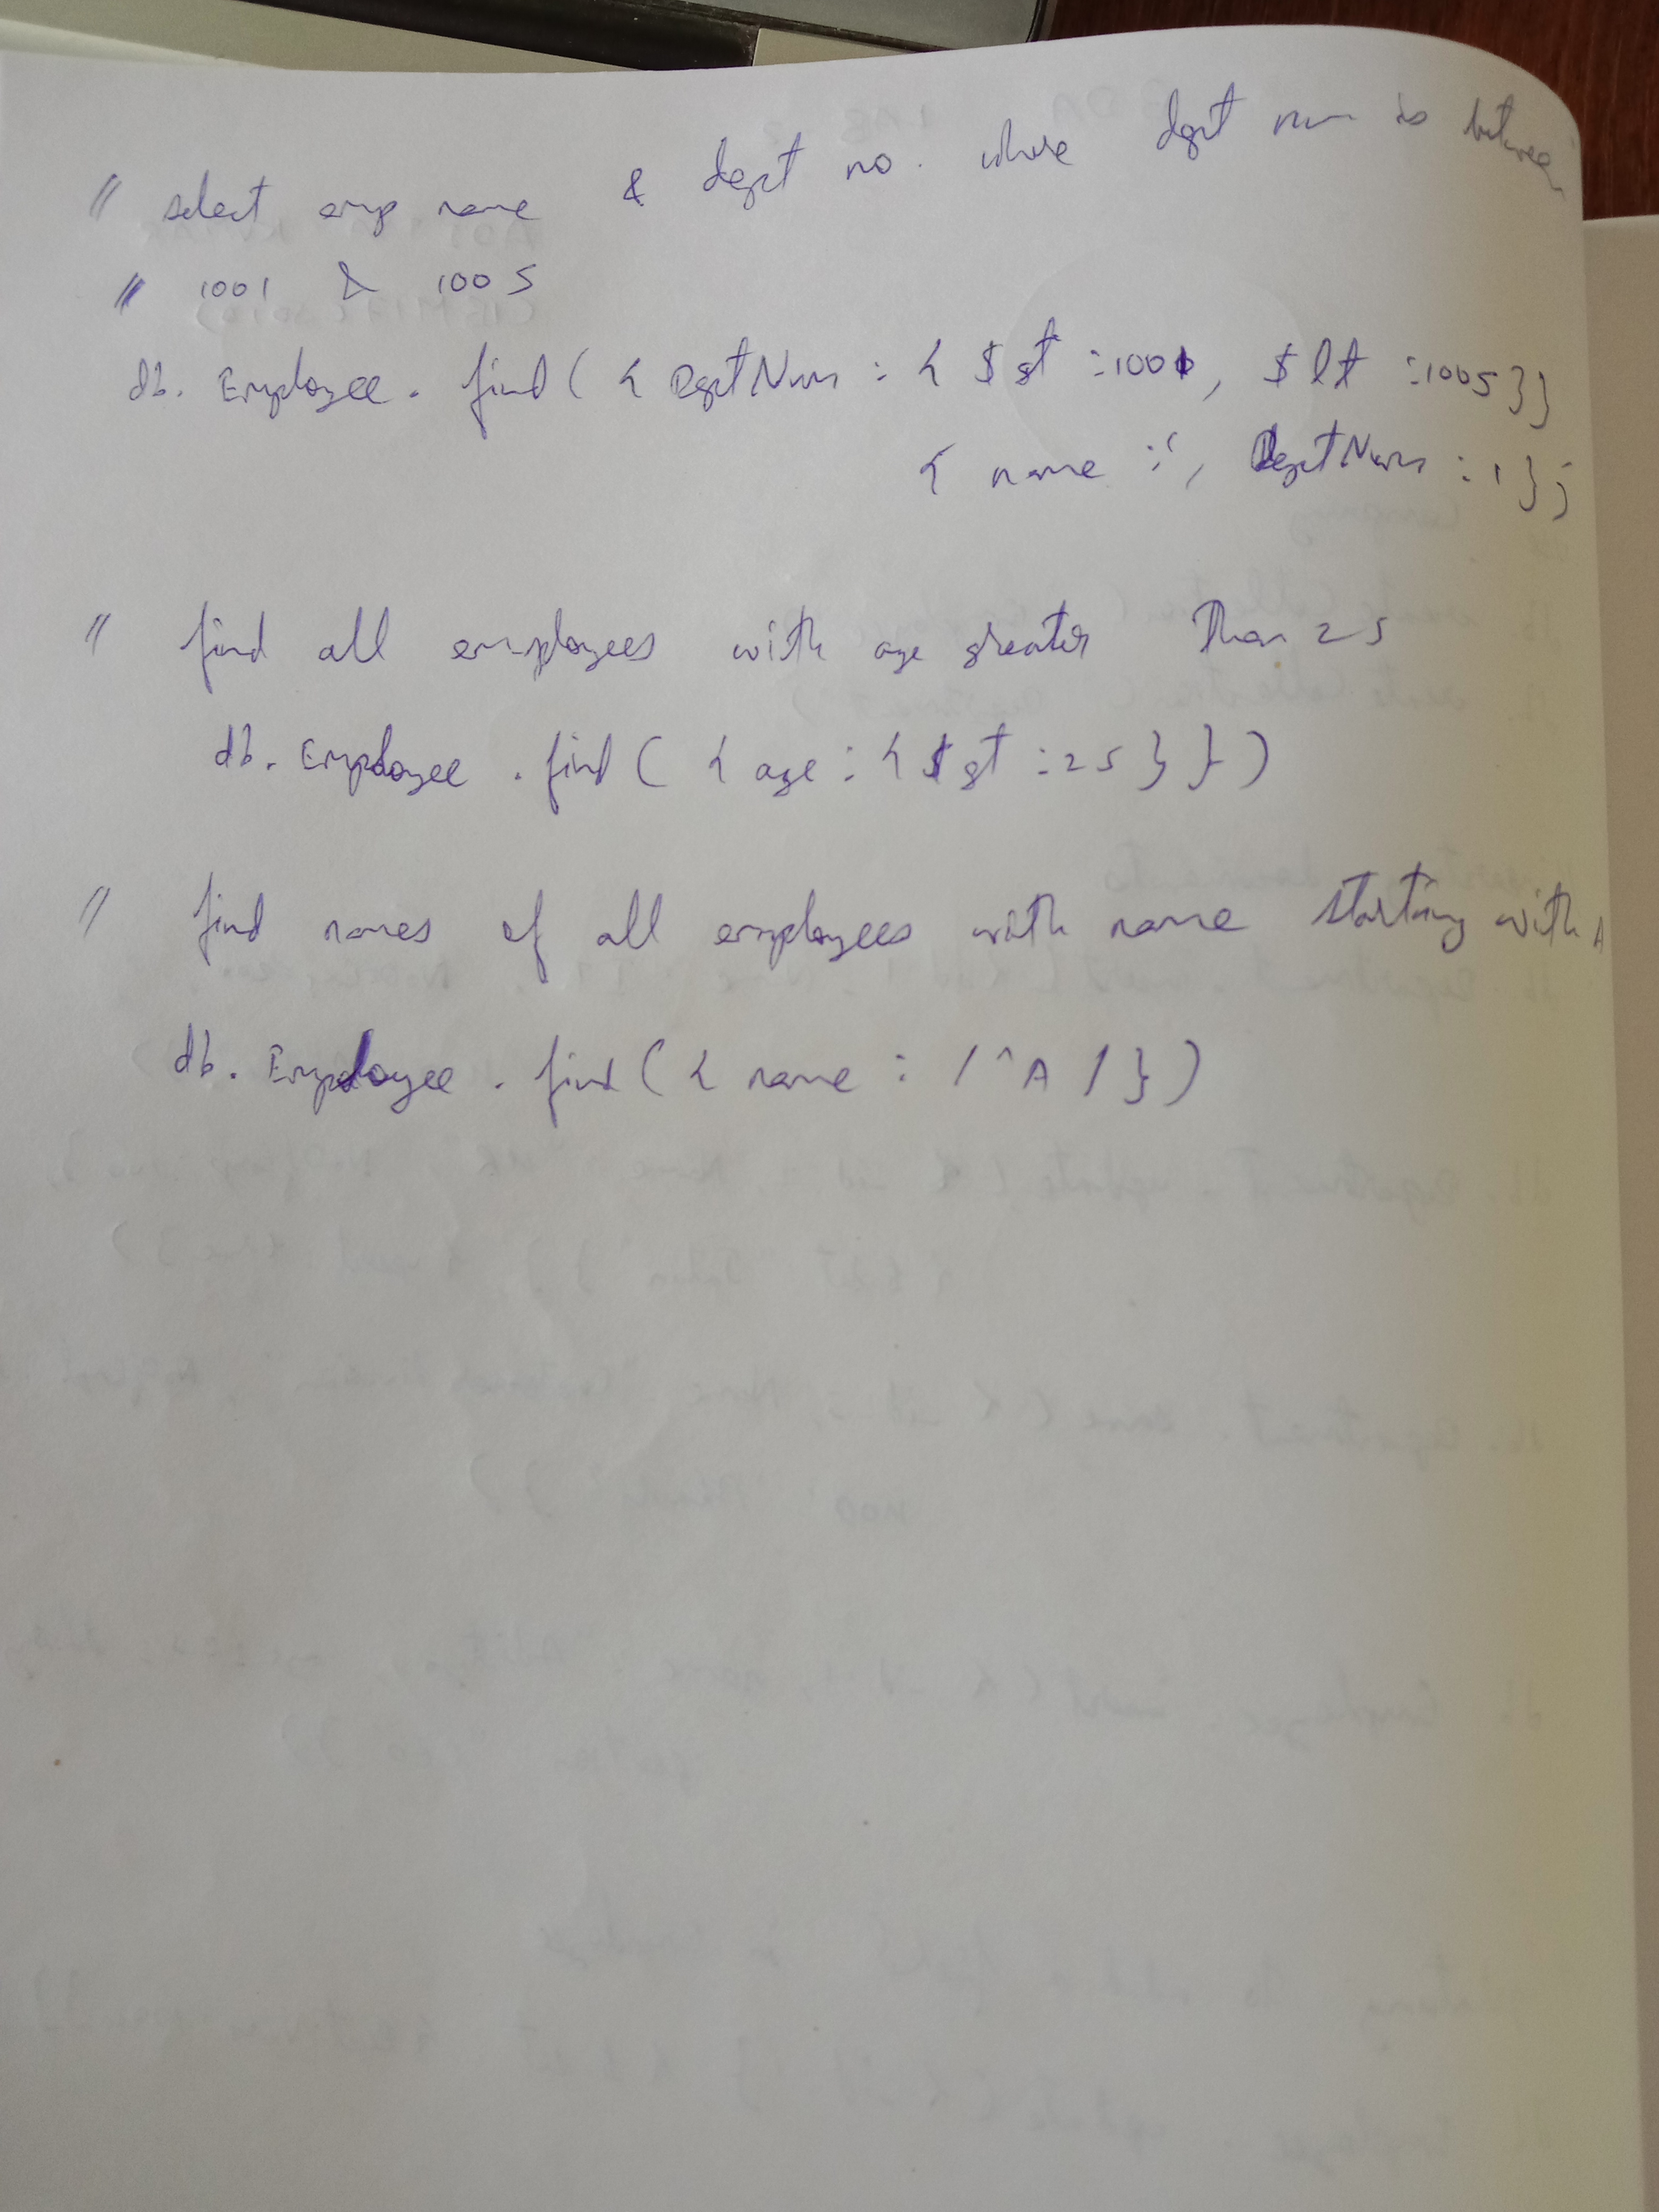 // select emp name & dept no. where dept num is between
// 1001 & 1005
db. Employee. find( { DeptNum : { $gt :1001, $lt :1005}}
{ name :1, DeptNum :1};
// find all employees with age greater than 25
db. Employee .find( { age : { $gt :25 } } )
// find names of all employees with name starting with A
db. Employee . find( { name : /^A/ } )